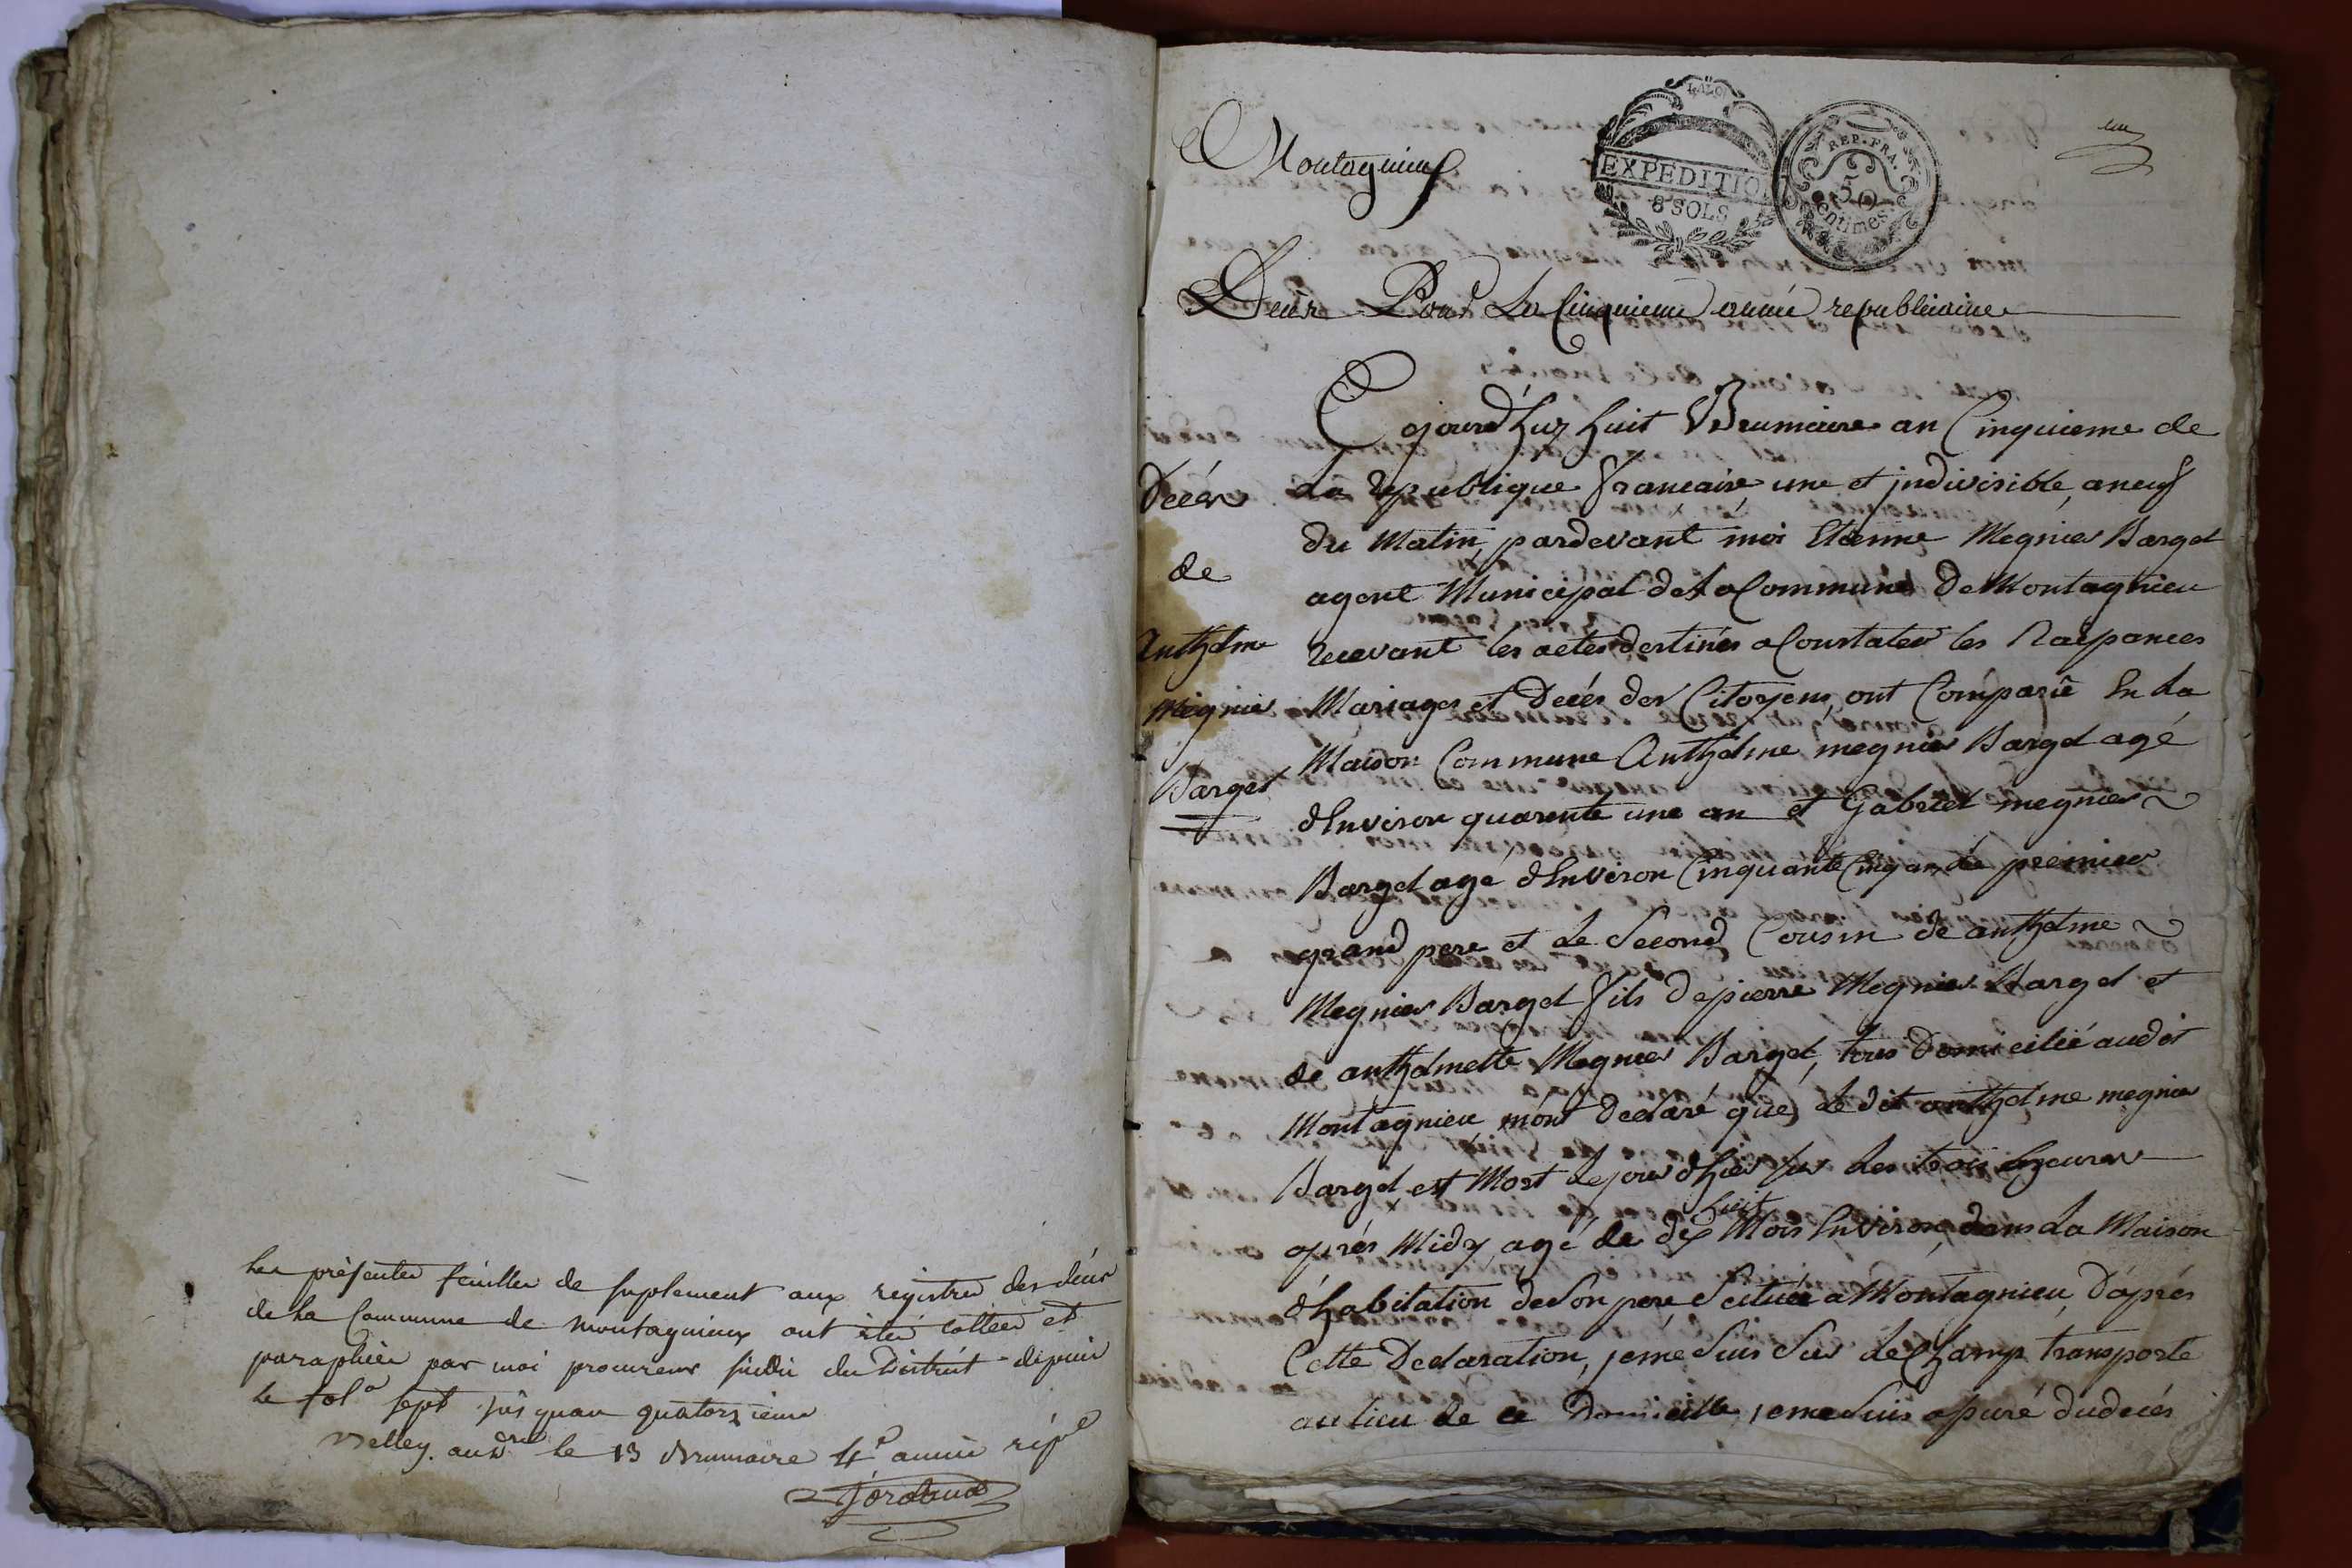 Les présentes feuilles de suplement aux registres des décès
de la Commune de montagnieux ont étés cottées et
paraphées par moi procureur sindic du District depuis
le folo sept jusquau quatorzième
Belley. audrin le 13 Brumaire 4e année répe
un
Montagnieux
LA LOI
EXPEDITION
8 SOLS
REP. FRA.
50
centimes
Décès Pour La Cinquieme année republicaine
Cejourd'huy huit Brumaire an Cinquieme de
la republique francaise une et jndivisible, a neuf
du Matin, pardevant moi Etienne Megnier Barget
agent Municipal de La Commune De Montagnieu
recevant les actes destinés a Constater les Naissances
Mariages et Decés des Citoyens, ont Comparû En La
Maison Commune Anthelme megnier Barget agé
d'Environ quarente une an et Gabriel megnier
Barget agé d'Environ Cinquante Cinq an, Le premier
grand pere et Le Second Cousin de anthelme
Megnier Barget fils de pierre Megnier Barget et
de anthelmette Megnier Barget, tous Domicilié audit
Montagnieu, m'ont declaré que Le dit anthelme megnier
Barget est Mort Le jour d'hier sur Les trois heures
huit
aprés Midy agé de dix Mois Environ, dans La Maison
d'habitation de Son pere Scituée a Montagnieu, D'aprés
Cette Declaration, je me Suis Sur Le Champ transporte
au lieu de ce Domicille, je me Suis assuré du decés
Décés
de
Anthelme
Megnier
Barget